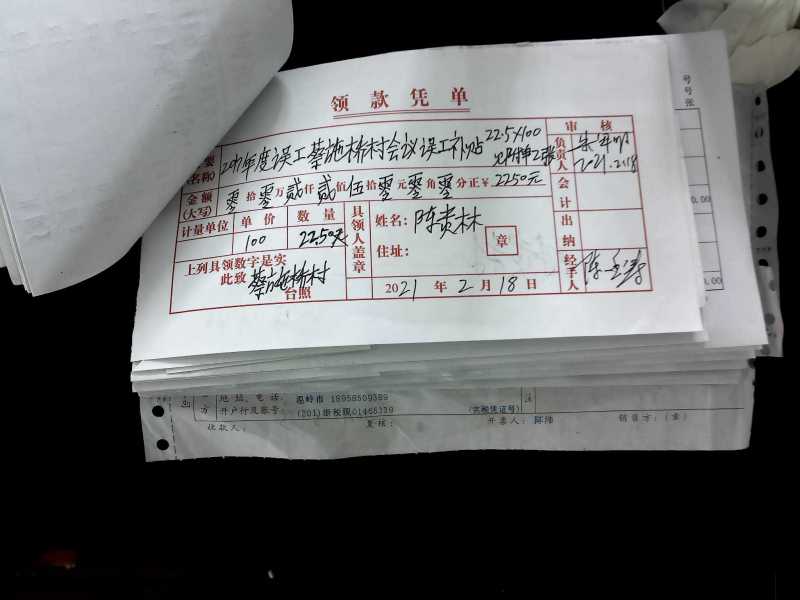 领款凭单
号
号
张
审核
要
(名称)
2021年度误工蔡施桥村会议误工补贴 22.5×100
负责人
2021.2.18
金额
(大写)
零拾零万贰仟贰佰伍拾零元零角零分正¥ 2250元
会计
计量单位 单价 数量
100 22.50天
具领人盖章
姓名: 陈贵林
住址:
章
出纳
上列具领数字是实
此致 蔡施桥村
台照
经手人
2021年2月18日
0.00
0.00
地址、电话: 温岭市 18958509389
方 开户行及账号:
收款人: 复核: 开票人: 销售方:(章)
注